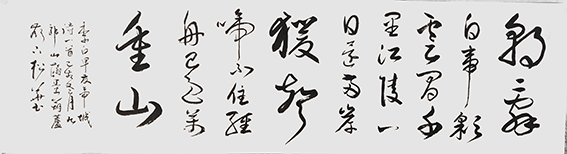 朝辞
白帝彩
云间千
里江陵一
日还两岸
猿声
啼不住轻
舟已过万
重山
李白早发帝城
诗一首